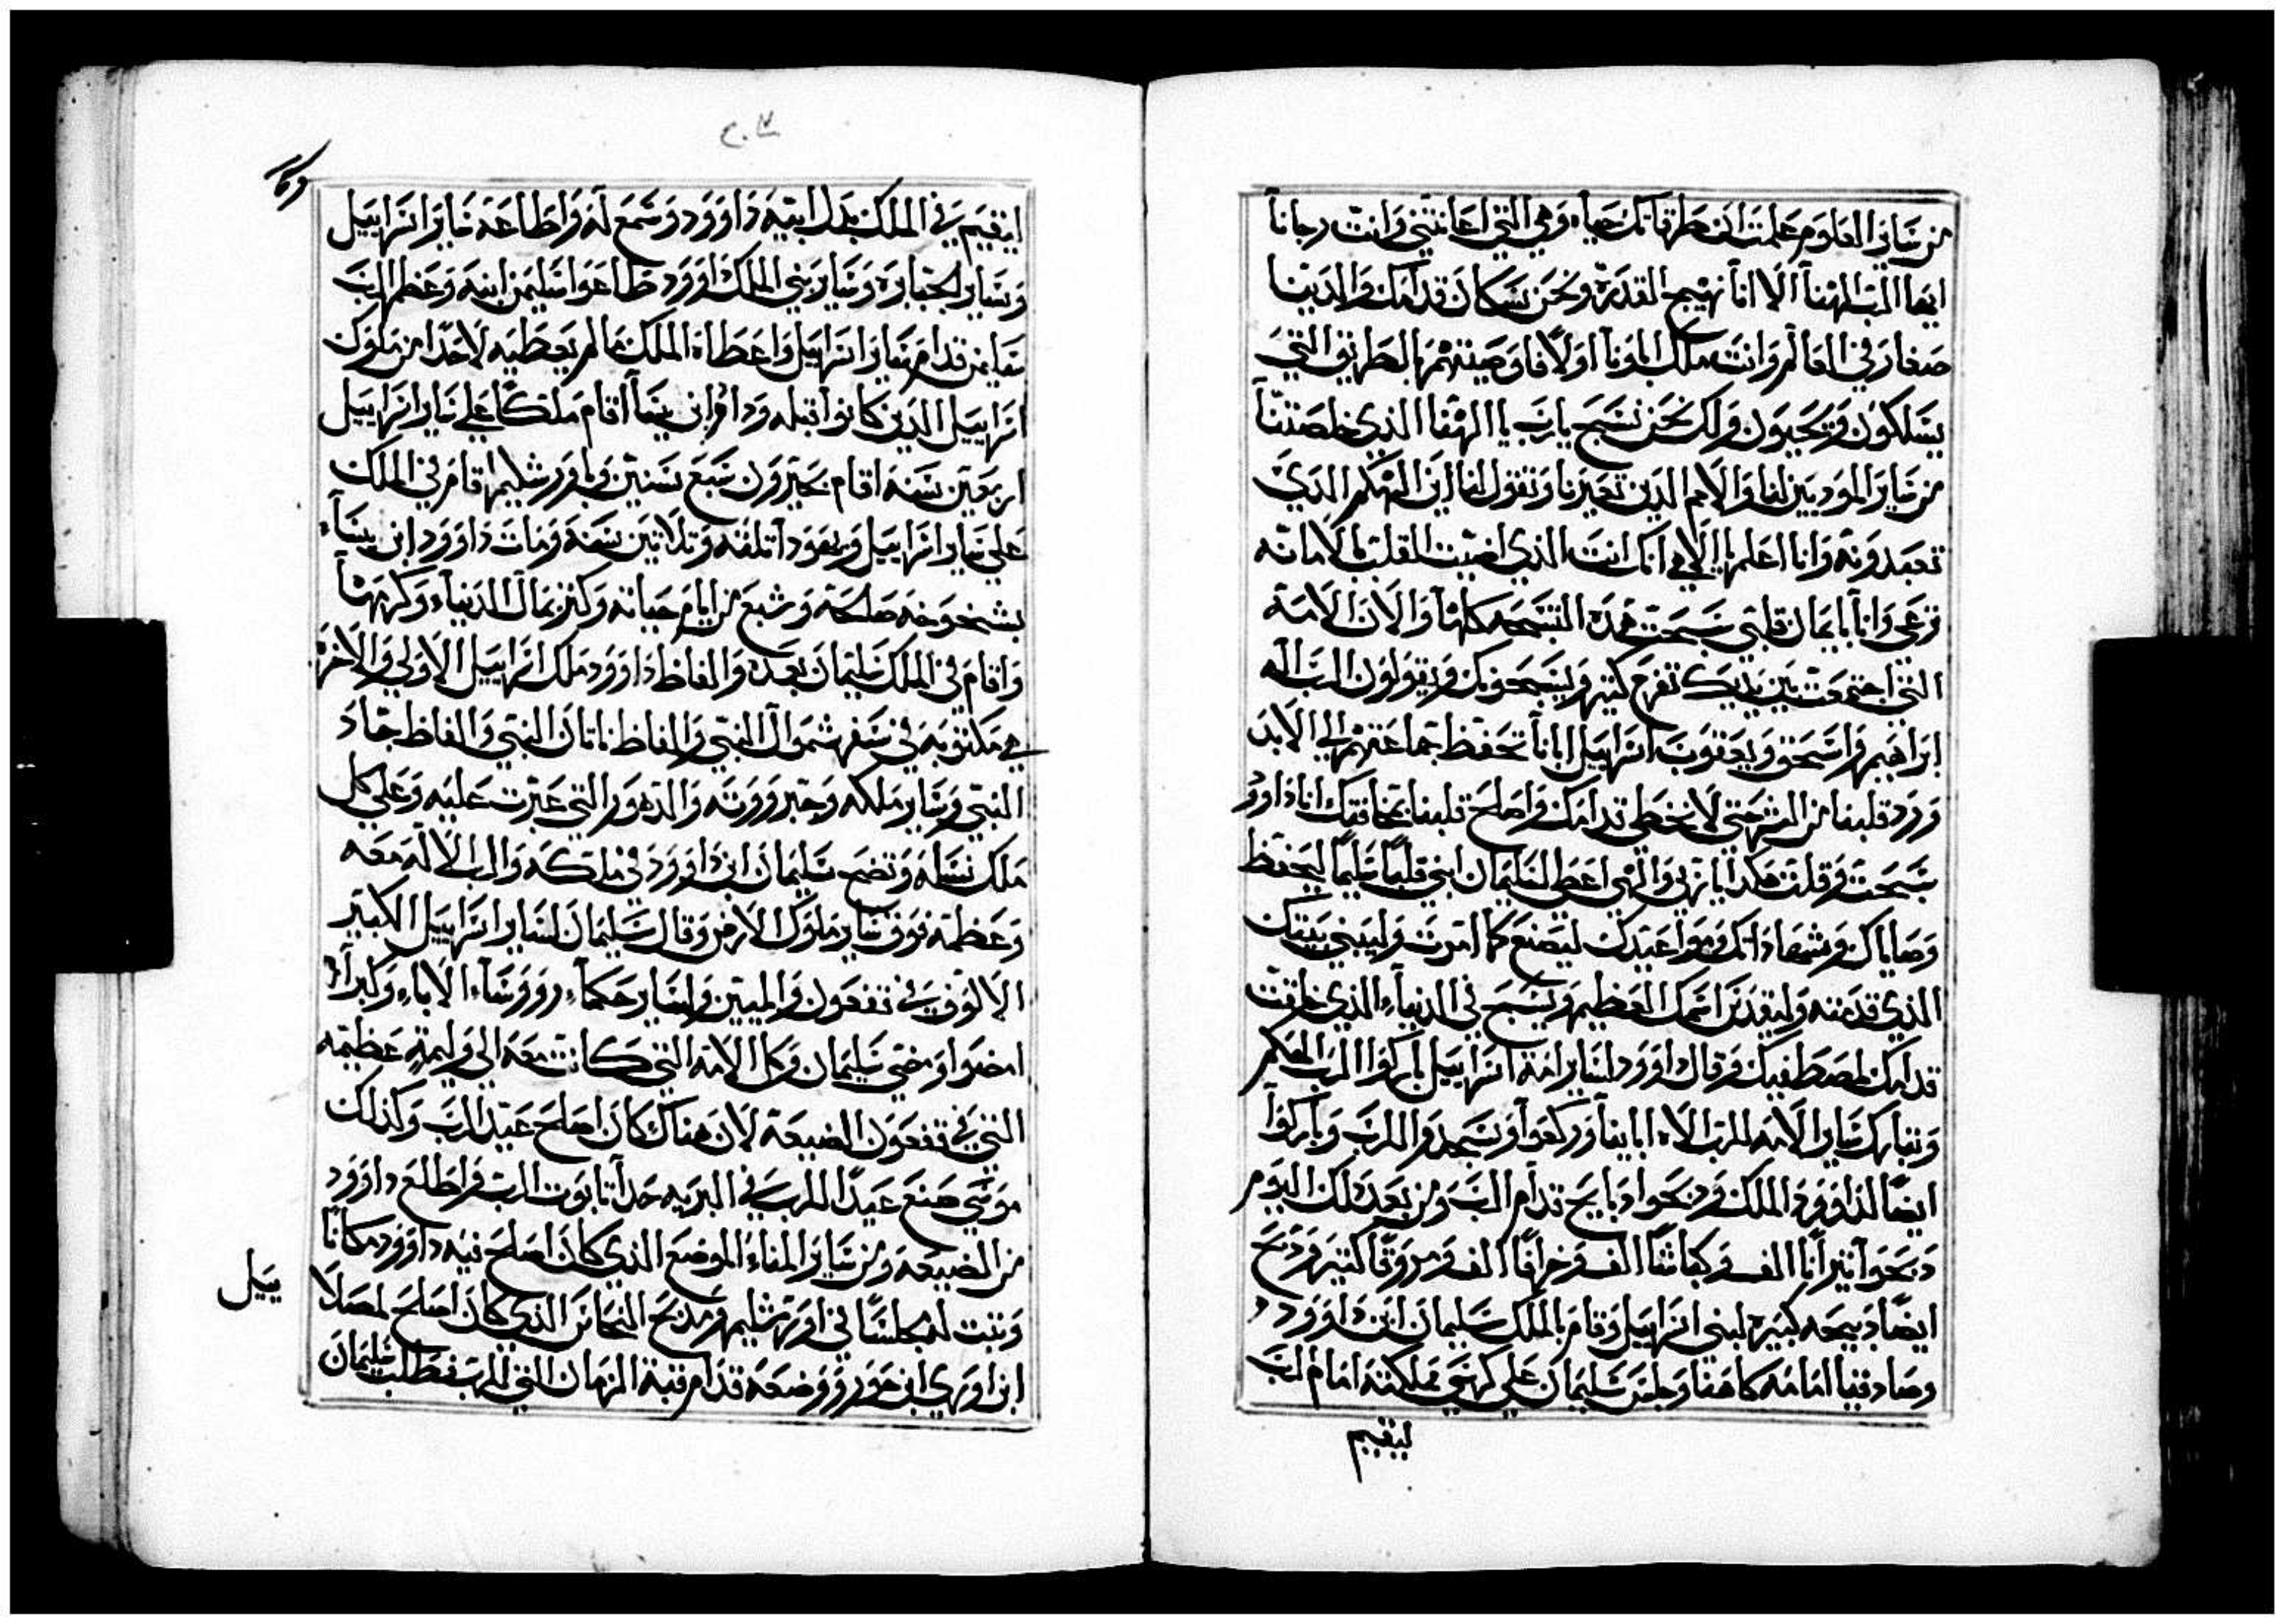 من ساير العلوم علمت ان طرقاتك حياه وهي التي اعانتني وانت رجانا
ايها الرب الهنا الا انا نهيج القدرة ونحن سكان قدامك والدينا
صغار في العالم وانت ملك ابونا اولا فاوصيتهم بالطريق التي
يسلكون ويحيون ولك نحن نسبح يارب يا الهنا الذي خلصتنا
من ساير الموديين لنا والامم الدين تعيرنا وتقول لنا اين الهكم الدي
تعبدونه وانا اعلم يا الاهي انك انت الذي اضيت القلب بالامانه
ترعى وانا بايمان قلبي سبحت هده التسبحه كلها والان الامة
التي اجتمعت بين يديك تفرح كتير ويسبحونك ويقولون الرب اله
ابراهيم واسحق ويعقوب اسراييل ابانا تحفظ جماعتهم الي الابد
ورد قلبنا من الشر حتي لا نخطي قدامك واصلح قلبنا بمخافتك انا داوود
سبحت وقلت هكدا ياربي والهي اعطي لسليمان ابني قلبا سليما ليحفظ
وصاياك وشهاداتك ومواعيدك ليصنع كما امرت وليبني بيتك
الذي قدمته وليقدس اسمك العظيم ويسبح في الدنياء الذي خلقت
قدامك لمصطفيك وقال داوود لساير امة اسراييل باركوا الرب الهكم
وتبارك ساير الامه للرب الاه اباينا وركعوا وسجدوا للرب وباركوا
ايضا لداوود الملك ودبحوا دبايح قدام الرب ومن بعد دلك اليوم
دبحوا اتيرانا الف وكباشا الف وخرافا الف ومروقا كتير ودبح
ايضا دبيحه كبيره لبني اسراييل وقام بالملك سليمان ابن داوود
وصادفيا امامه كاهنا وجلس سليمان علي كرسي مملكته امام الرب
ليقيم
وكا
ليقيم في الملك بدل ابيه داوود وسمع له واطاعه ساير اسراييل
وساير الجبابرة وساير بني الملك داوود طاعوا سليمن ابنه وعظم الرب
سليمن قدام ساير اسراييل واعطاه الملك ما لم يعطيه لاحدا من ملوك
اسراييل الدين كانوا قبله وداوود ابن يسا اقام ملكا علي ساير اسراييل
اربعين سنة اقام بحبرون سبع سنين وباورشليم اقام في الملك
علي ساير اسراييل ويهودا تلته وتلاتين سنة ومات داوود ابن يساء
بشيخوخه صالحة وشبع من ايام حياته وكنز بمال الدنياء وكرمها
واقام في الملك سليمان بعده والفاظ داوود ملك اسراييل الاولي والاخرة
هي مكتوبه في سفر شموال النبي والفاظ ناتان النبي والفاظ جاد
النبي وساير ملكه وجبرووته والدهور التي عبرت عليه وعلي كل
ملك نسله ونضح سليمان ابن داوود في ملكه والرب الاله معه
وعظمه فوق ساير ملوك الارض وقال سليمان لساير اسراييل الكبير
الالوف في تفعون والميتين ولساير حكماء رووساء الاباء وكبراء
امضوا ومضي سليمان وكل الامه التي كانت معه الي وليمة عظيمه
التي في تفعون الضيعة لان هناك كان اصلح عيد الرب وكذلك
موسي صنع عيدا للرب في البريه حدا تابوت الرب واطلع داوود
من الضيعه ومن ساير المناء الموضع الذي كان اصلح فيه داوود مكانا
وتبت له مجلسا في اورشليم ومدبح النحاس الذي كان اصلح لمصلا
ابن اوري ابن حور ووضعه قدام قبة الزمان التي للرب فطلب سليمان
ييل